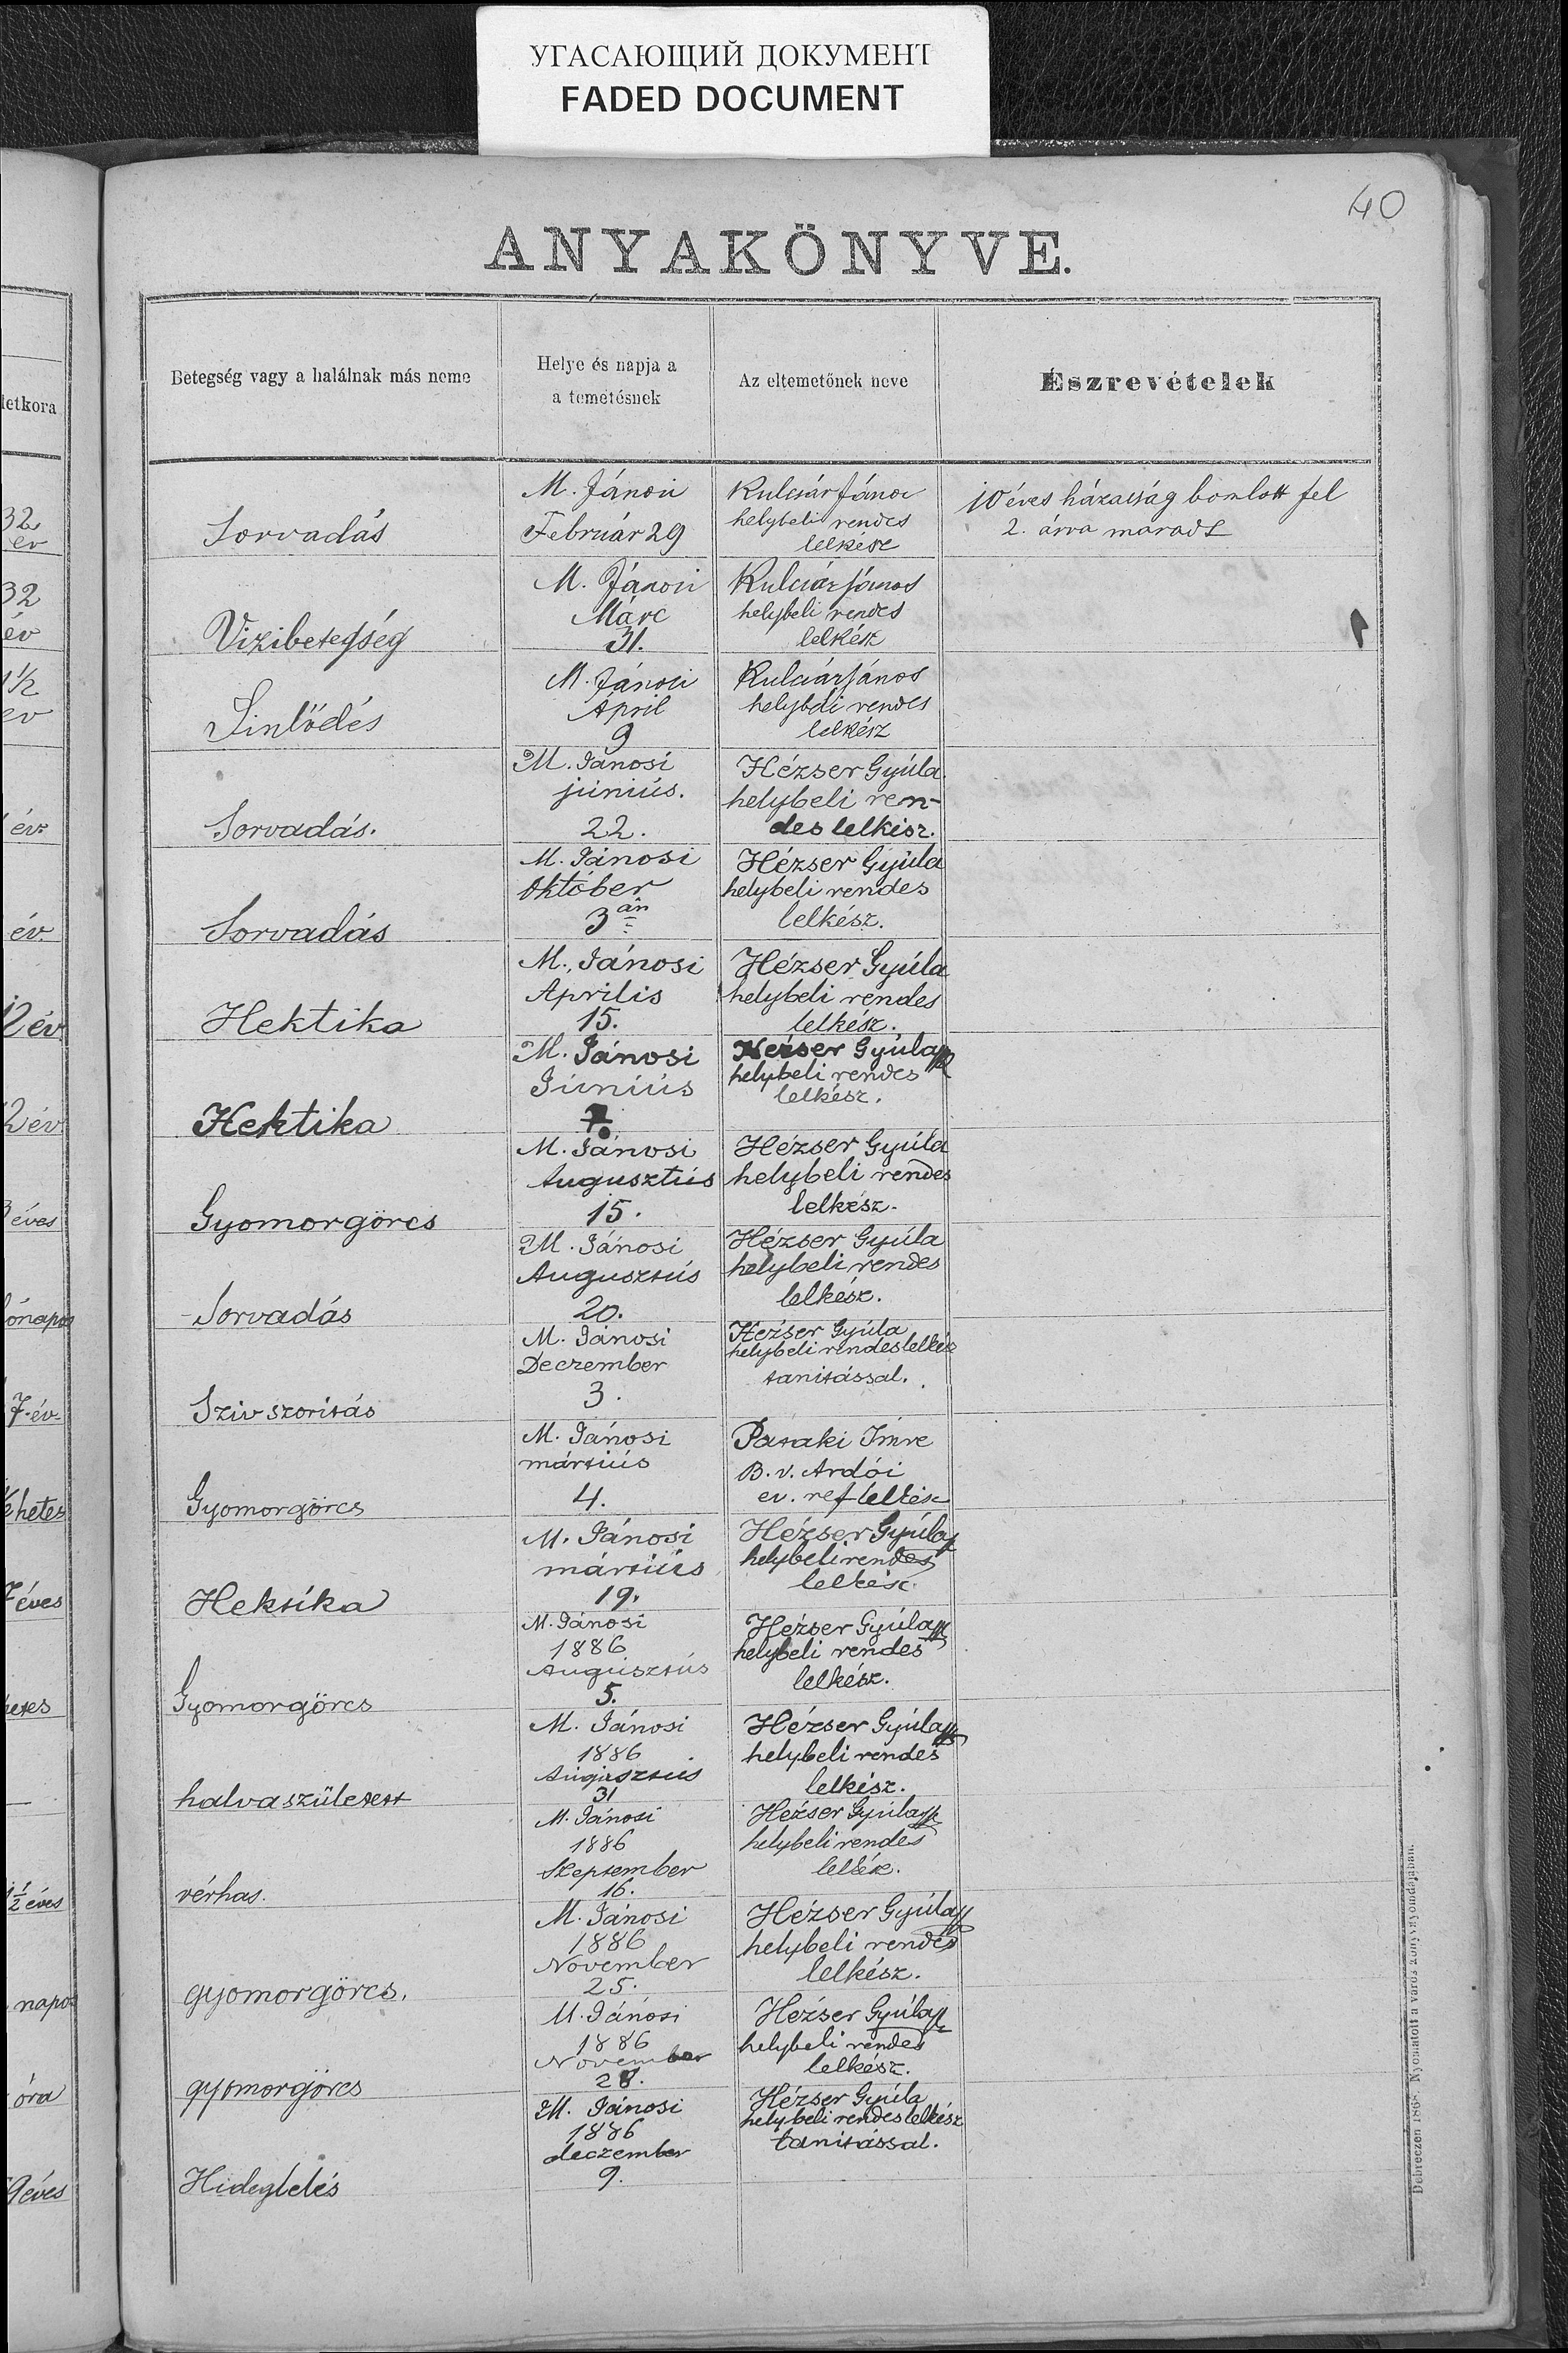 УГАСАЮЩИЙ ДОКУМЕНТ
FADED DOCUMENT
40
ANYAKÖNYVE.
letkora
Betegség vagy a halálnak más neme
Helye és napja a
a temetésnek
Az eltemetőnek neve
Észrevételek
32
ev
Sorvadás
M. Jánosi
Február 29
Kulcsár János
helybeli rendes
lelkész
10 éves házasság bomlott fel
2. árva maradt
32
év
Vizibetegség
M. Jánosi
Márc
31.
Kulcsár János
helybeli rendes
lelkész
1 1/2
ev
Sinlődés
M. Jánosi
April
9
Kulcsár János
helybeli rendes
lelkész
év
Sorvadás.
M. Jánosi
június.
22.
Hézser Gyúla
helybeli ren-
des lelkész.
év.
Sorvadás
M. Jánosi
Október
3 án
Hézser Gyúla
helybeli rendes
lelkész.
12 év
Hektika
M. Jánosi
Aprilis
15.
Hézser Gyúla
helybeli rendes
lelkész.
2 év
Hektika
M. Jánosi
Június
7.
Hézser Gyúla
helybeli rendes
lelkész.
éves
Gyomorgörcs
M. Jánosi
Augusztús
15.
Hézser Gyúla
helybeli rendes
lelkész.
ónapos
Sorvadás
M. Jánosi
Augusztús
20.
Hézser Gyúla
helybeli rendes
lelkész.
7 év
Sziv szoritás
M. Jánosi
Deczember
3.
Hézser Gyúla
helybeli rendes lelkész
tanitással.
hetes
Gyomorgörcs
M. Jánosi
mártiús
4.
Pataki Imre
B. v. Ardói
ev. ref lelkész
7 éves
Hektika
M. Jánosi
mártiús
19.
Hézser Gyúla
helybeli rendes
lelkész.
hetes
Gyomorgörcs
M. Jánosi
1886
Augúsztús
5.
Hézser Gyúla
helybeli rendes
lelkész.
halva született
M. Jánosi
1886
Augúsztús
31
Hézser Gyúla
helybeli rendes
lelkész.
1 1/2 éves
vérhas.
M. Jánosi
1886
Szeptember
16.
Hézser Gyúla
helybeli rendes
lelkész.
napos
gyomorgörcs.
M. Jánosi
1886
November
25.
Hézser Gyúla
helybeli rendes
lelkész.
óra
gyomorgörcs
M. Jánosi
1886
November
28.
Hézser Gyúla
helybeli rendes
lelkész.
9 éves
Hideglelés
M. Jánosi
1886
deczember
9.
Hézser Gyúla
helybeli rendes lelkész
tanitással.
Debreczen 1868. Nyomatott a város könyvnyomdájában.